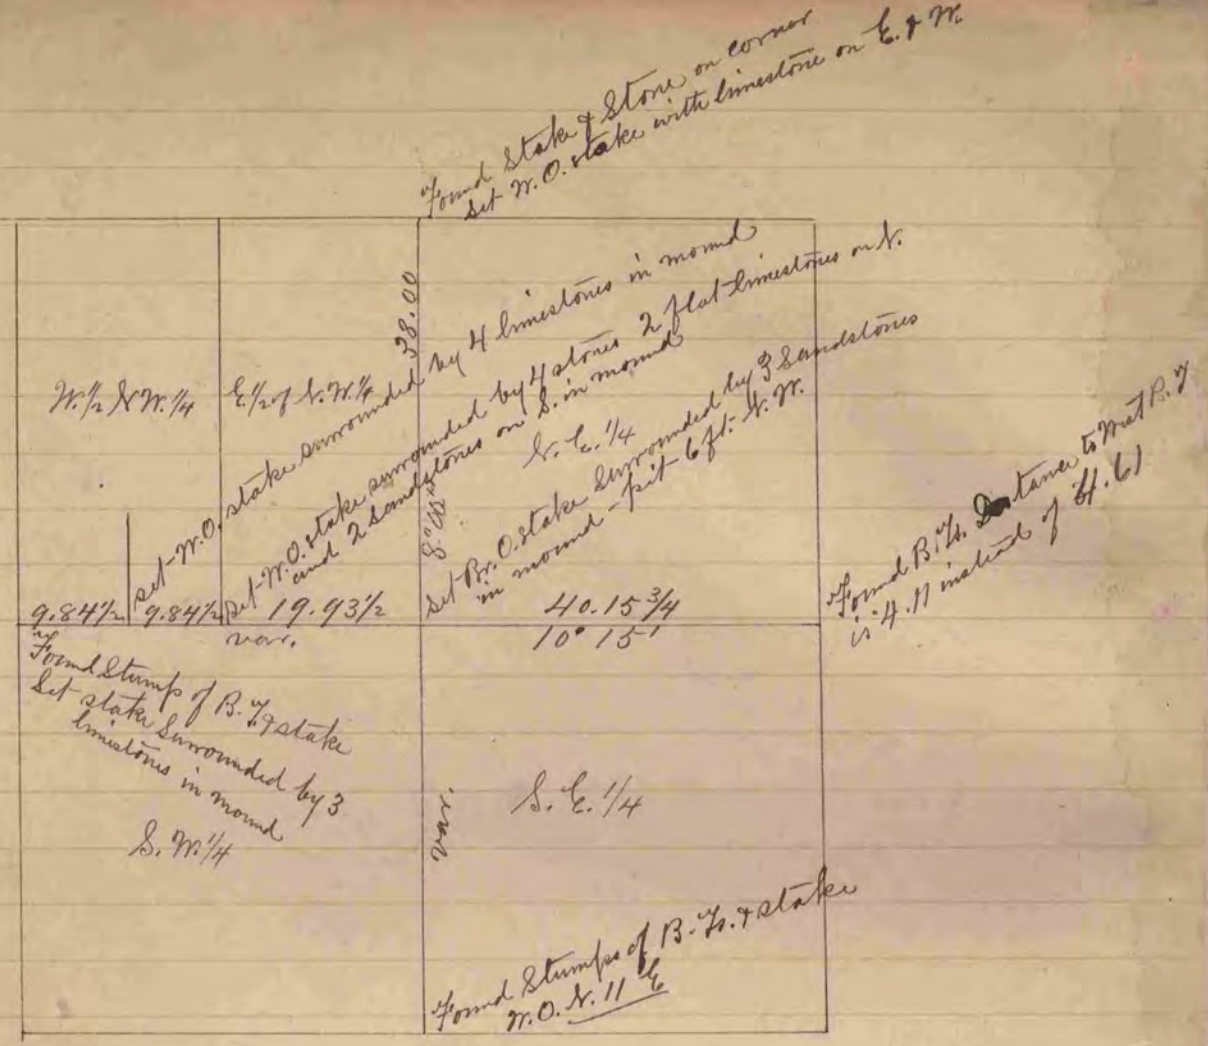 Found Stake & Stone on corner
Set W.O. stake with limestone on E. & W.
38.00
W. 1/2 N W. 1/4
E 1/2 of N.W. 1/4
set W.O. stake surrounded by 4 limestones in mound
Set W.O. stake surrounded by 4 stones 2 flat limestones on N.
and 2 sandstones on S. in mound
N.E. 1/4
Set Br. O. stake Surrounded by 3 Sandstones
in mound - pit 6 ft. N.W.
Found B.Ts. Distance to West B.T
is 4.11 instead of 4.61
9.84 1/2
9.84 1/2
19.93 1/2
var.
40.15 3/4
10° 15'
Found Stump of B.T. & stake
Set stake Surrounded by 3
limestones in mound
S.W. 1/4
var.
S.E. 1/4
Found Stumps of B.Ts. & stake
W.O. N. 11 E